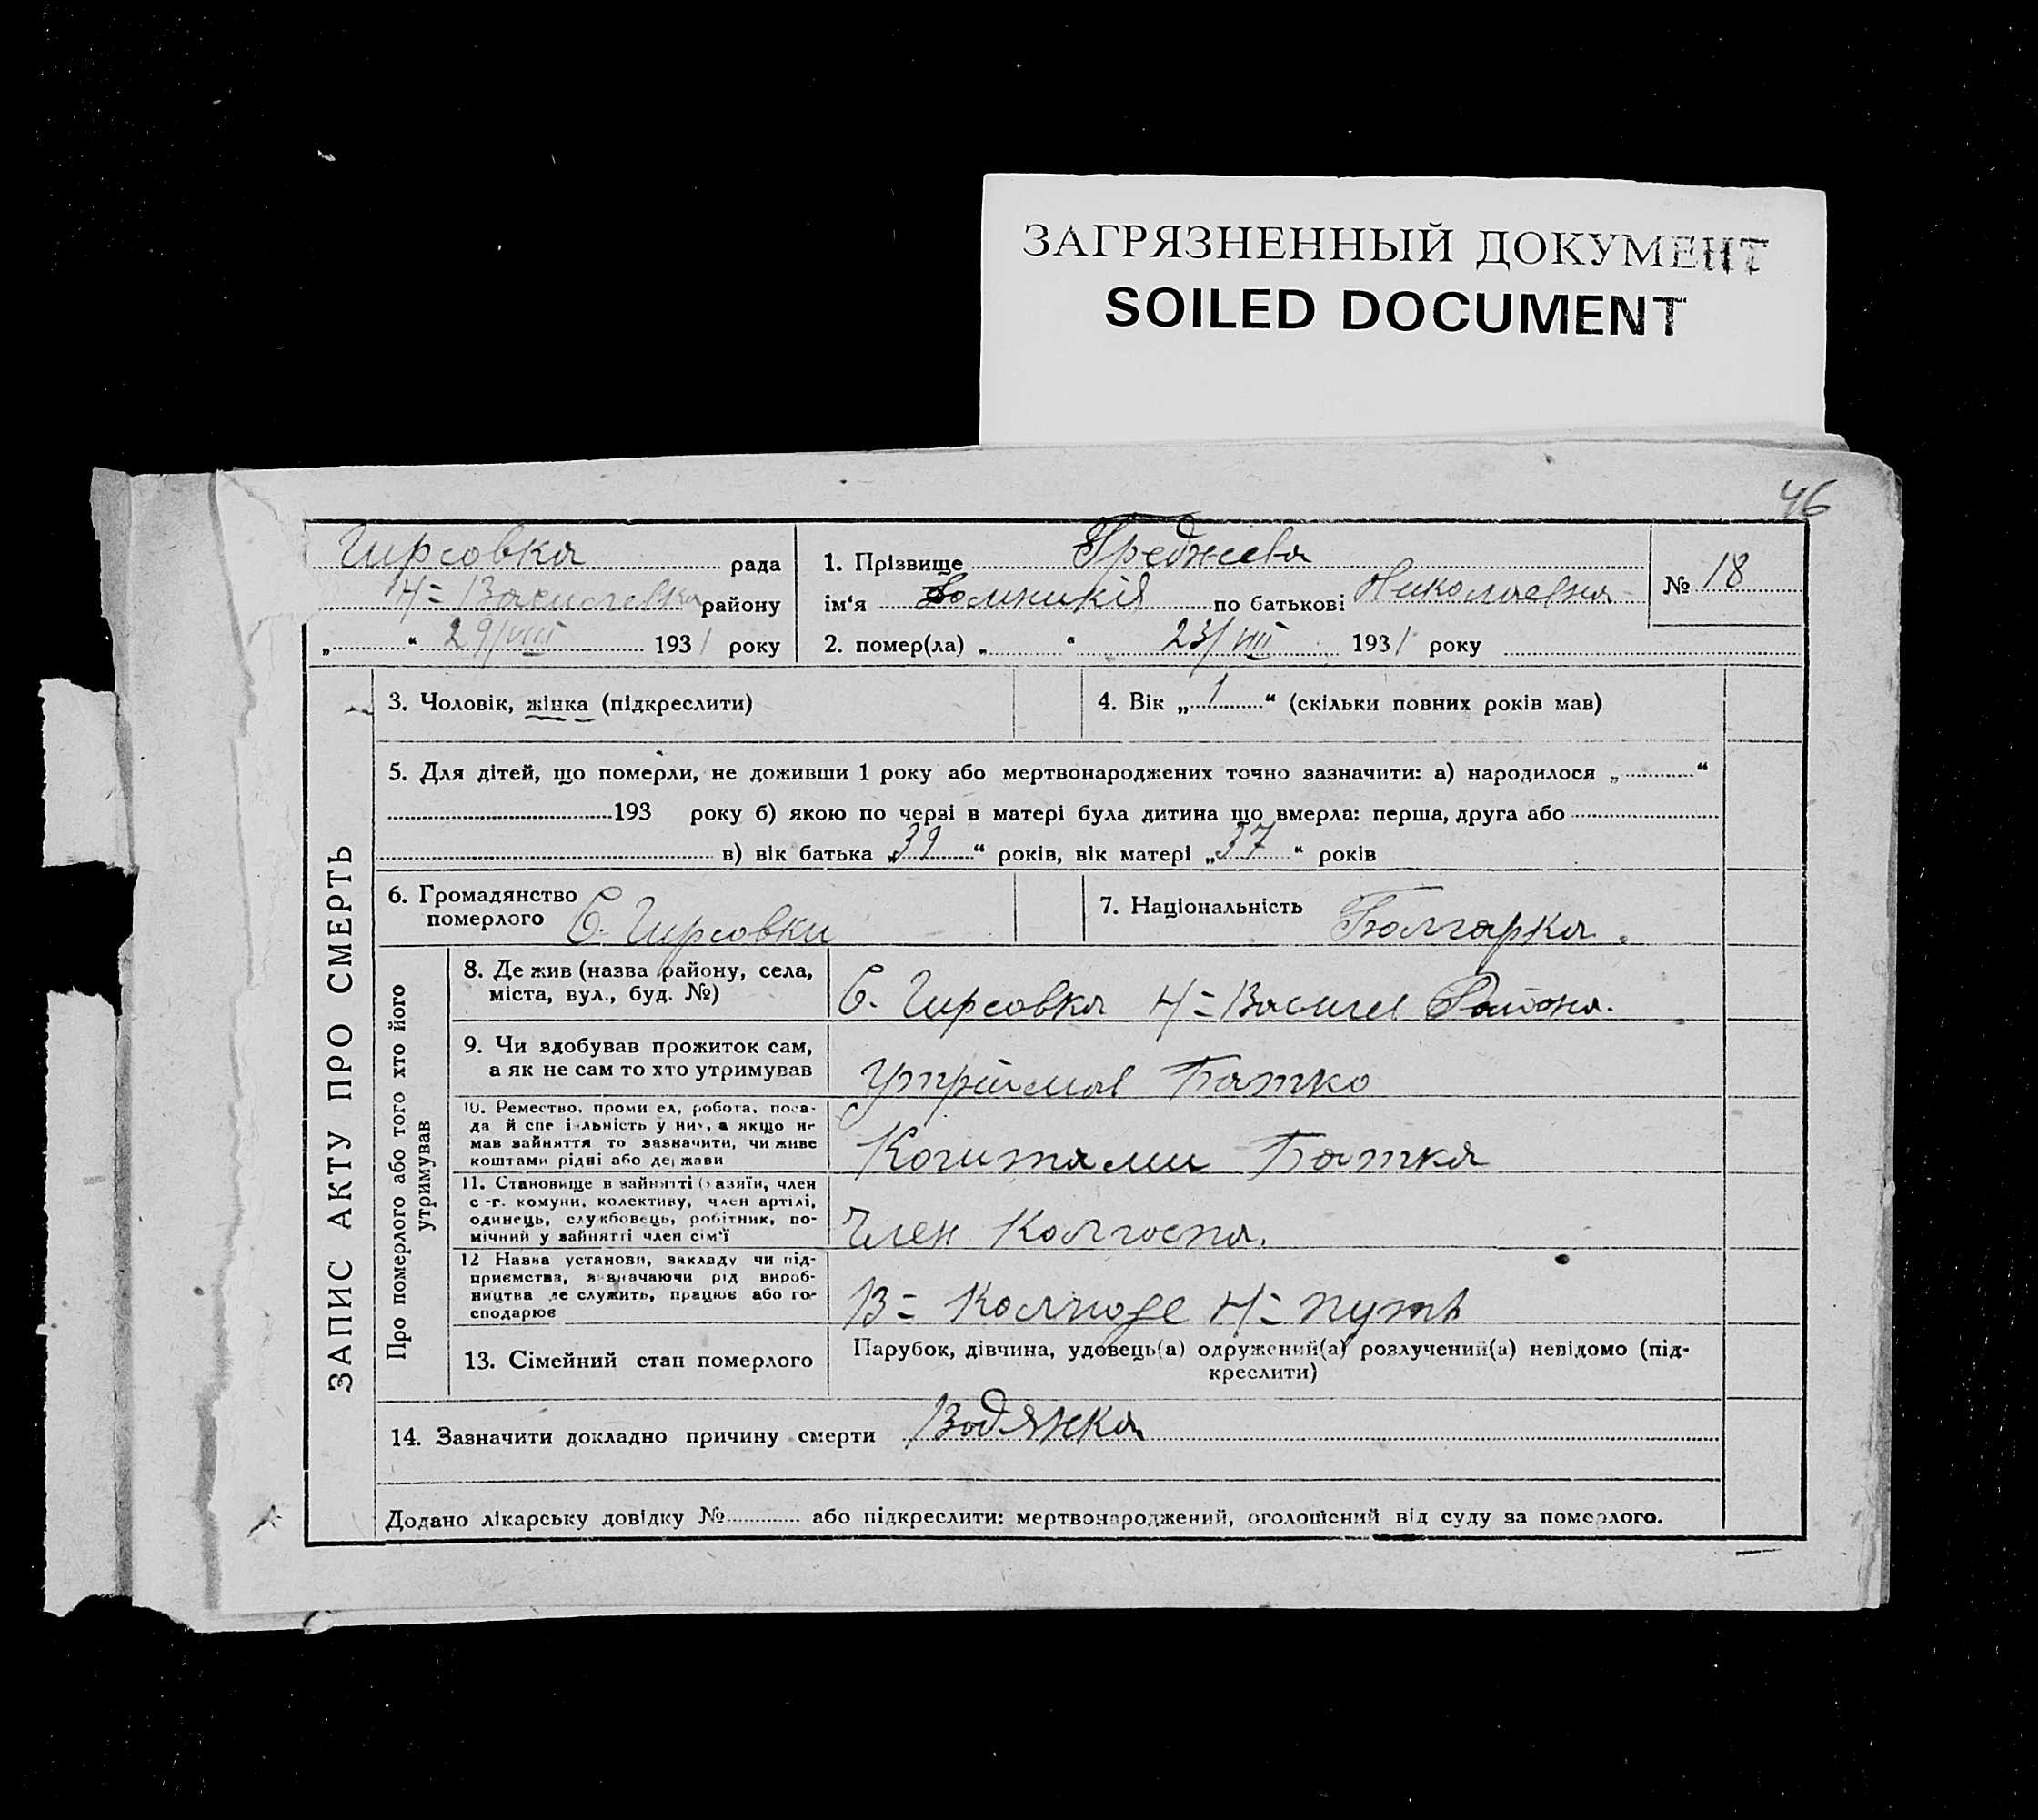 ЗАГРЯЗНЕННЫЙ ДОКУМЕНТ
SOILED DOCUMENT
46
Гирсовка рада
Н= Васильевка району
„ “ 29/VIII 1931 року
1. Прізвище Греджева
ім‘я по батькові Николаевна
2. помер(ла) „ “ 23/VIII 1931 року
№ 18
ЗАПИС АКТУ ПРО СМЕРТЬ
3. Чоловік, жінка (підкреслити)
4. Вік „ 1 “ (скільки повних років мав)
5. Для дітей, що померли, не доживши 1 року або мертвонароджених точно зазначити: а) народилося „ “
193 року б) якою по черзі в матері була дитина що вмерла: перша, друга або
в) вік батька „ 39 “ років, вік матері „ 37 “ років
6. Громадянство
померлого С. Гирсовки
7. Національність Болгарка.
Про померлого або того хто його
утримував
8. Де жив (назва району, села,
міста, вул., буд. №)
С. Гирсовка Н= Васил Района.
9. Чи здобував прожиток сам,
а як не сам то хто утримував
Утрімав Батко
10. Ремество, проми ел, робота, поса-
да й спе і льність у них, а якщо не
мав зайняття то зазначити, чи живе
коштами рідні або держави
Коштами Батка
11. Становище в зайнятті (хазяїн, член
с-г. комуни, колективу, член артілі,
одинець, службовець, робітник, по-
мічний у зайнятті член сім‘ї
Член Колгоспа.
12 Назва установи, закладу чи під-
приємства, зазначаючи рід вироб-
ництва де служить, працює або го-
сподарює
В= Колхозе Н= путь
13. Сімейний стан померлого
Парубок, дівчина, удовець(а) одружений(а) розлучений(а) невідомо (під-
креслити)
14. Зазначити докладно причину смерти Водянка
Додано лікарську довідку № або підкреслити: мертвонароджений, оголошений від суду за померлого.